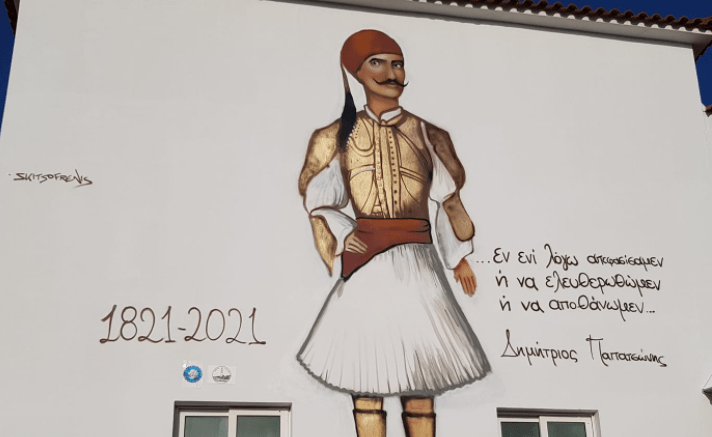 SKITSOFRENIS
...Εν ενί λόγω απεφασίσαμεν
ή να ελευθερωθώμεν
ή να αποθάνωμεν...
1821-2021
Δημήτριος Παπατσώνης